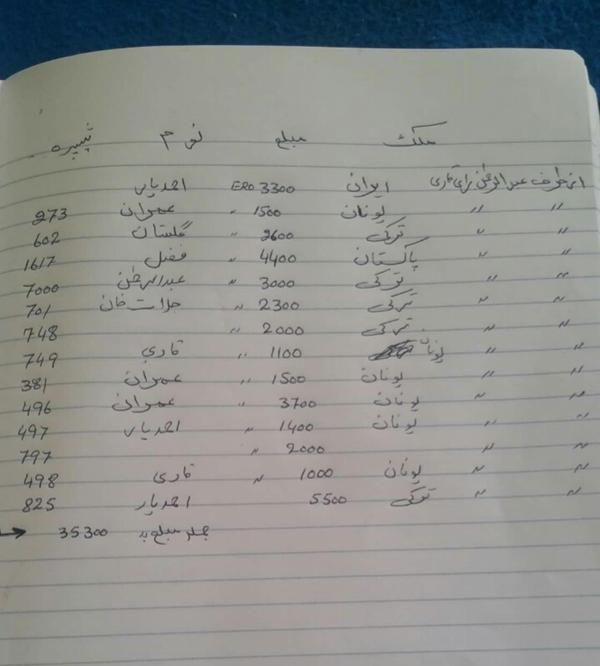 ملک مبلغ نوم نمبره
از طرف عبدالرحمن برای قاری ایران ERO 3300 احمدیار
〃 〃 یونان 1500 〃 عمران 273
〃 〃 ترکی 2600 〃 گلستان 602
〃 〃 پاکستان 4400 〃 فضل 1617
〃 〃 ترکی 3000 〃 عبدالرحمن 7000
〃 〃 ترکی 2300 〃 خان 701
〃 〃 ترکی 2000 〃 748
〃 〃 یونان 1100 〃 قاری 749
〃 〃 یونان 1500 〃 عمران 381
〃 〃 یونان 3700 〃 عمران 496
〃 〃 یونان 1400 〃 احمدیار 497
〃 〃 2000 〃 797
〃 〃 یونان 1000 〃 قاری 498
〃 〃 ترکی 5500 احمدیار 825
جمله مبلغ 35300